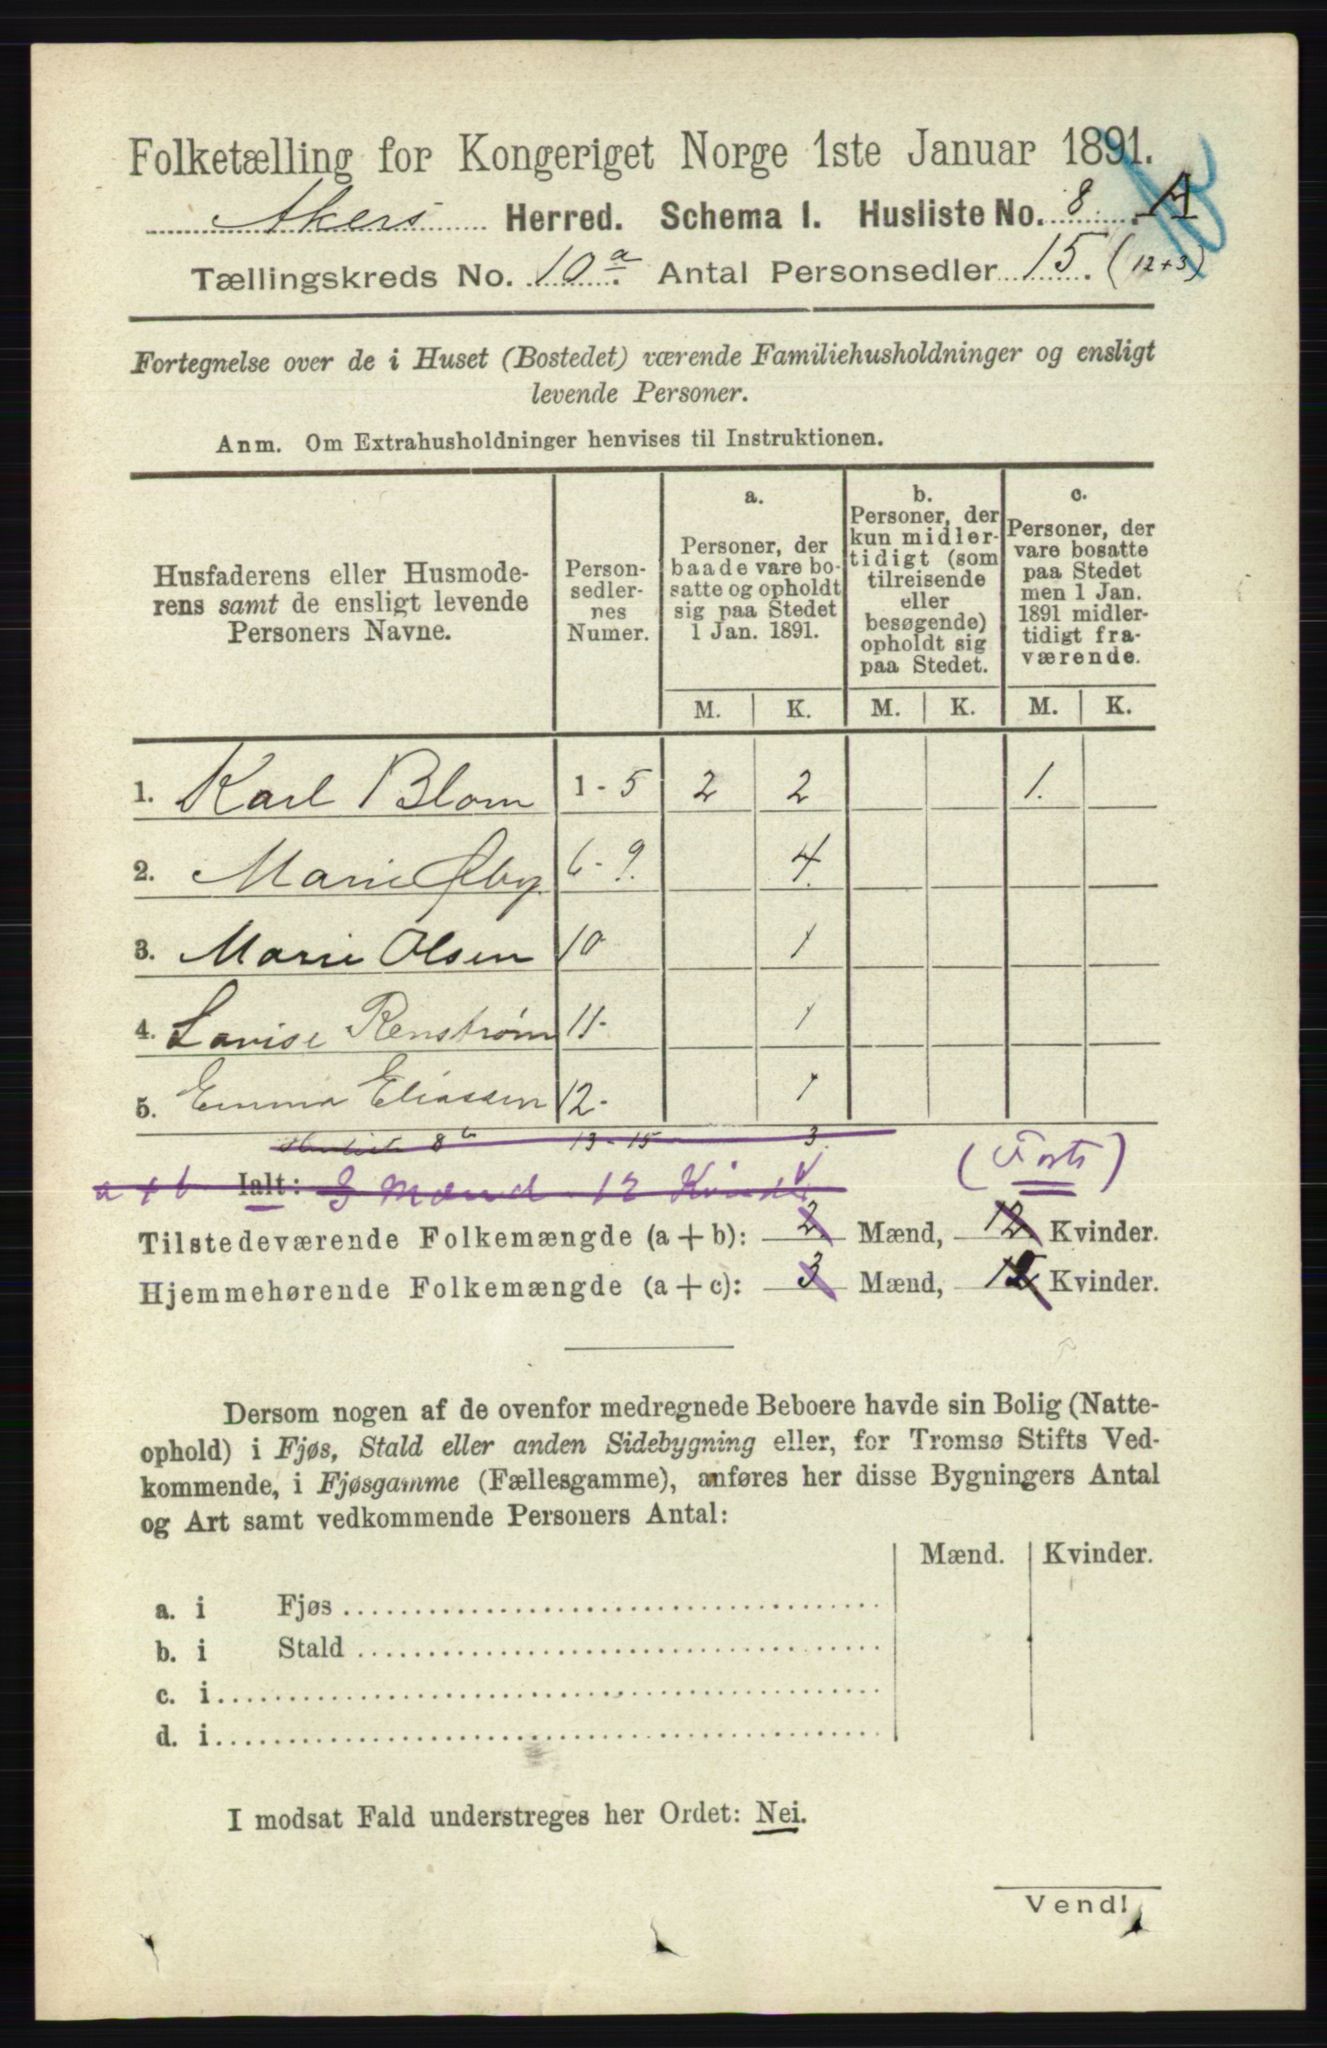 Folketælling for Kongeriget Norge 1ste Januar 1891.
Akers Herred. Schema 1. Husliste No. 8 A
Tællingskreds No. 10a Antal Personsedler 15. (12+3)
Fortegnelse over de i Huset (Bostedet) værende Familiehusholdninger og ensligt
levende Personer.
Anm. Om Extrahusholdninger henvises til Instruktionen.
Husfaderens eller Husmode-
rens samt de ensligt levende
Personers Navne.
Person-
sedler-
nes
Numer.
a.
Personer, der
baade vare bo-
satte og opholdt
sig paa Stedet
1 Jan. 1891.
b.
Personer, der
kun midler-
tidigt (som
tilreisende
eller
besøgende)
opholdt sig
paa Stedet.
c.
Personer, der
vare bosatte
paa Stedet
men 1 Jan.
1891 midler-
tidigt fra-
værende.
M. K. M. K. M. K.
1. Karl Blom 1 - 5 2 2 1.
2. Marie Øby 6 - 9. 4.
3. Marie Olsen 10 1
4. Lovise Renstrøm 11- 1
5. Emma Eliassen 12- 1
Husliste 8b 13-15 3.
a + b Ialt: 3 Mænd 12 Kvind
Tilstedeværende Folkemængde (a + b): 2 Mænd, 12 Kvinder.
Hjemmehørende Folkemængde (a + c): 3 Mænd, 12 Kvinder.
Dersom nogen af de ovenfor medregnede Beboere havde sin Bolig (Natte-
ophold) i Fjøs, Stald eller anden Sidebygning eller, for Tromsø Stifts Ved-
kommende, i Fjøsgamme (Fællesgamme), anføres her disse Bygningers Antal
og Art samt vedkommende Personers Antal:
Mænd. Kvinder.
a. i Fjøs
b. i Stald
c. i
d. i
I modsat Fald understreges her Ordet: Nei.
Vend!